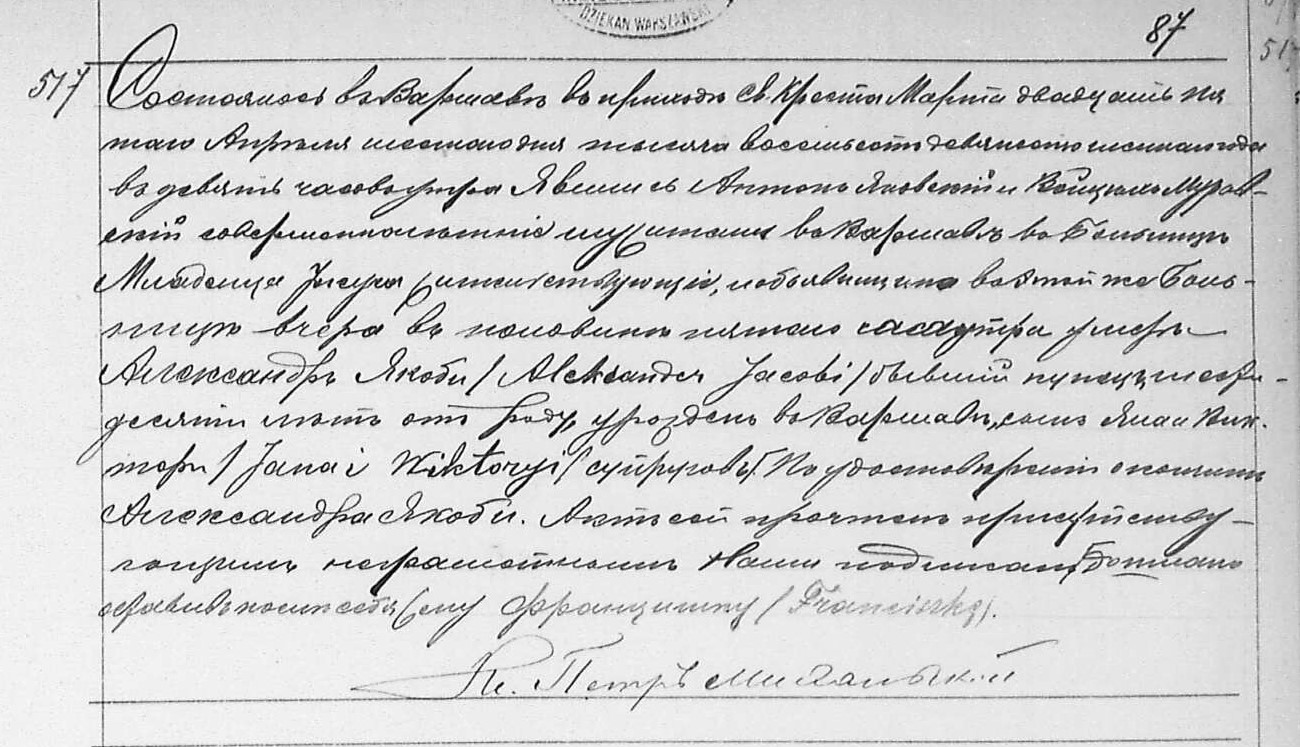 DZIEKAN WARSZAWSKI
87
517
Состоялось въ Варшавѣ въ приходѣ Св. Креста Марта двадцать пя
таго Апрѣля шестаго дня тысяча восемьсотъ девяносто года
въ девять часовъ утра Явились Антонъ Яновскій и Мурав-
скій совершеннолѣтніе въ Варшавѣ въ Больницѣ
Младенца Іисуса жительствующіе, и объявили что въ этой же Боль-
ницѣ вчера въ половинѣ пятаго часа утра умеръ
Александръ Якоби / Aleksander Jacobi / бывшій купецъ шести-
десяти лѣтъ отъ роду, урожденъ въ Варшавѣ, сынъ Яна и Вик-
торіи / Jana i Wiktoryi / супруговъ. По удостовѣреніи о кончинѣ
Александра Якоби. Актъ сей прочтенъ присутству-
ющимъ неграмотнымъ Нами подписанъ,
оставивъ по себѣ жену Францишку / Franciszkę /.
Кс. Петръ Михальскій